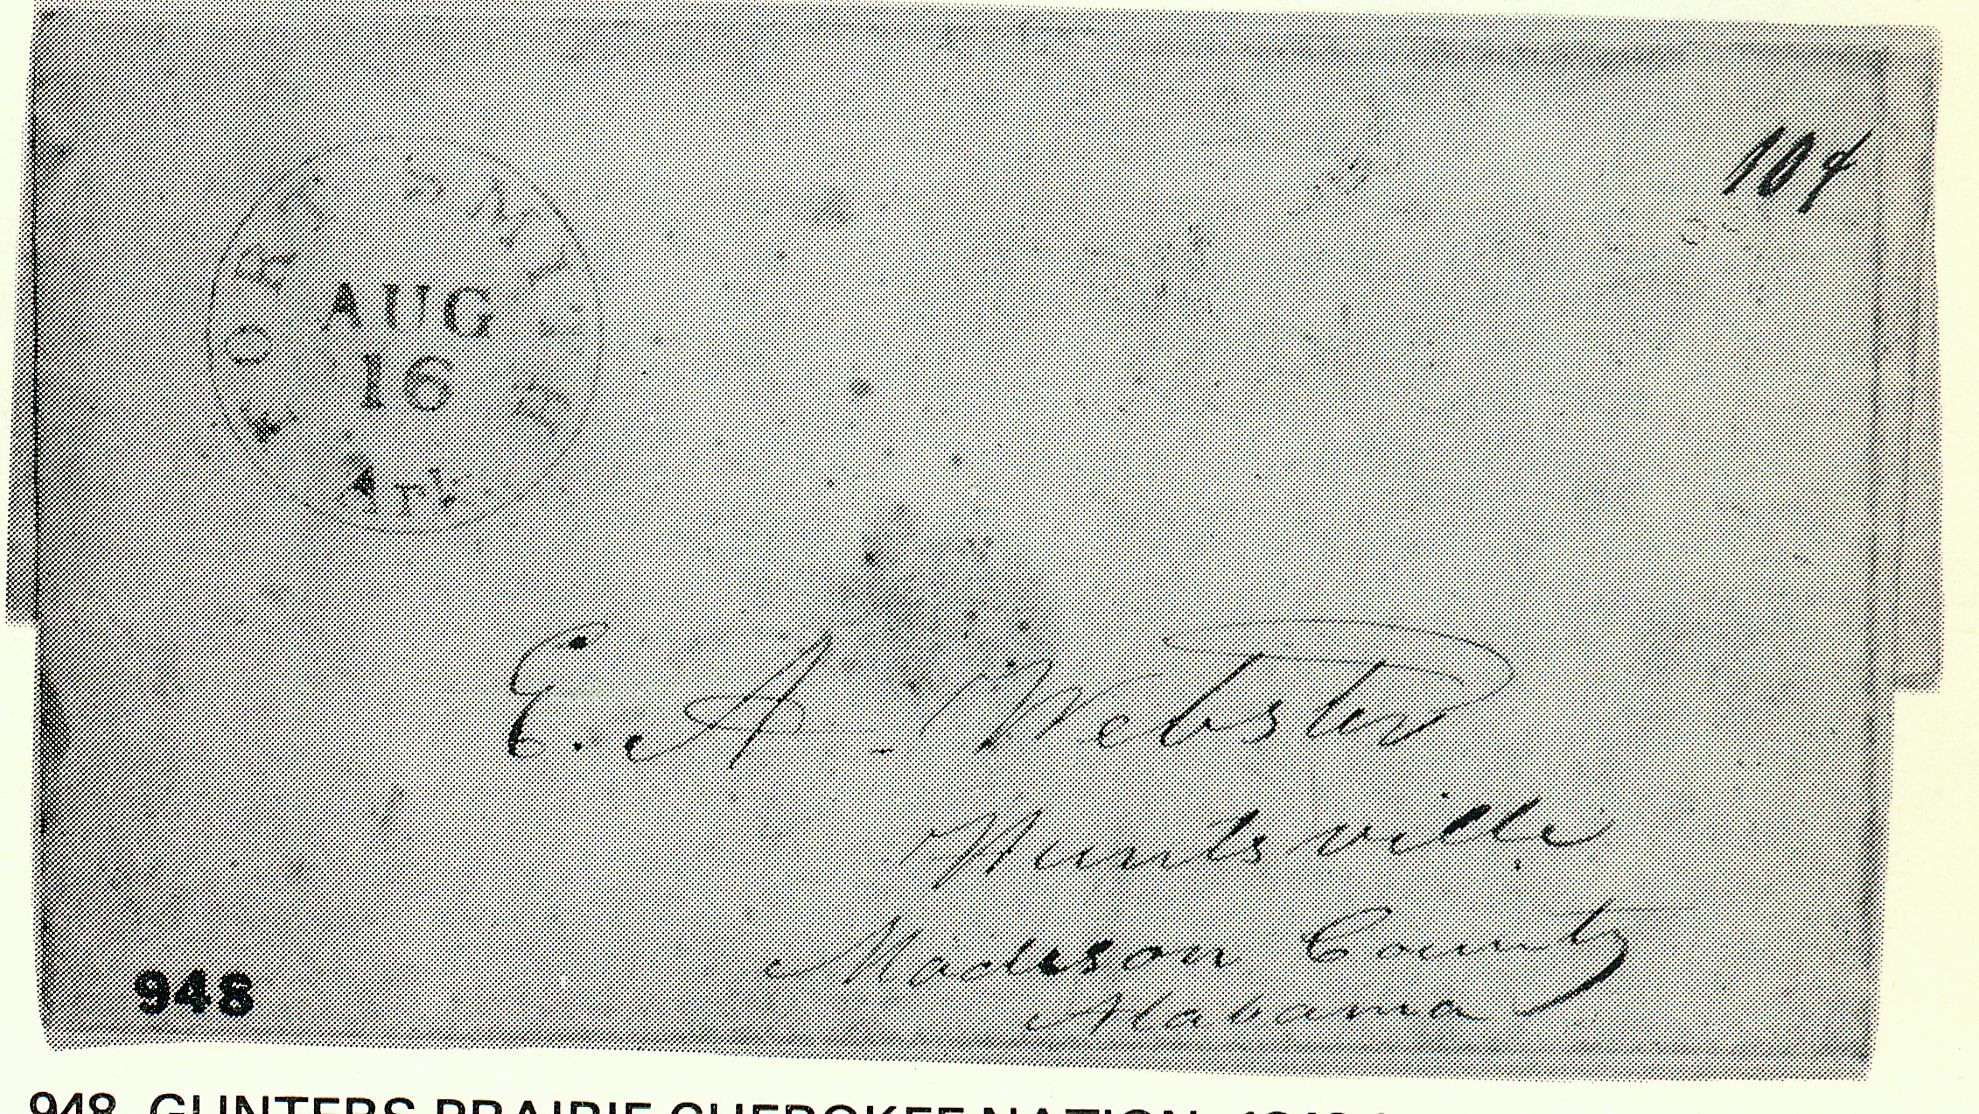 10¢
FORT SMITH
AUG
16
Ark
E. A. Webster
Huntsville
Madison County
Alabama
948
948 GUNTERS PRAIRIE CHEROKEE NATION,